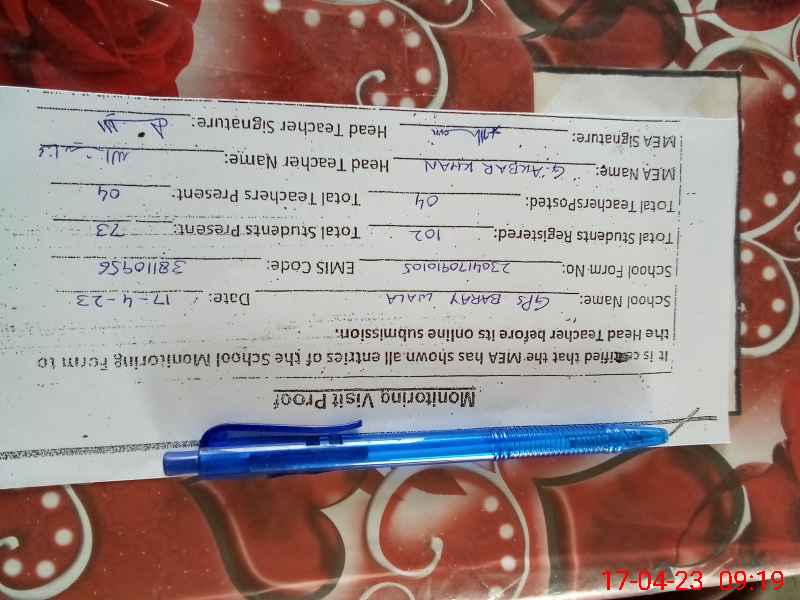 Monitoring Visit Proof
It is certified that the MEA has shown all entries of the School Monitoring Form to
the Head Teacher before its online submission.
School Name: GPS BARAY WALA Date: 17-4-23
School Form No: 230417091015 EMIS Code: 38110956
Total Students Registered: 102 Total Students Present: 73
Total TeachersPosted: 04 Total Teachers Present: 04
MEA Name: G. AKBAR KHAN Head Teacher Name:
MEA Signature: Head Teacher Signature:
17-04-23 09:19